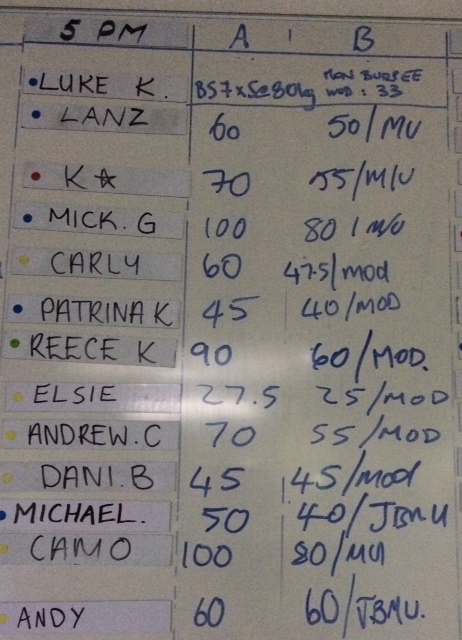 5 PM A B
LUKE K. BS 7x5@80kg MAN BURPEE
MOD : 33
LANZ 60 50/MU
K☆ 70 55/M/U
MICK. G 100 80 / M/U
CARLY 60 47.5/mod
PATRINA K 45 40/MOD
REECE K 90 60/MOD.
ELSIE 27.5 25/MOD
ANDREW. C 70 55/MOD
DANI. B 45 45/mod
MICHAEL. 50 40/JBMU
CAMO 100 80/MU
ANDY 60 60/JBMU.